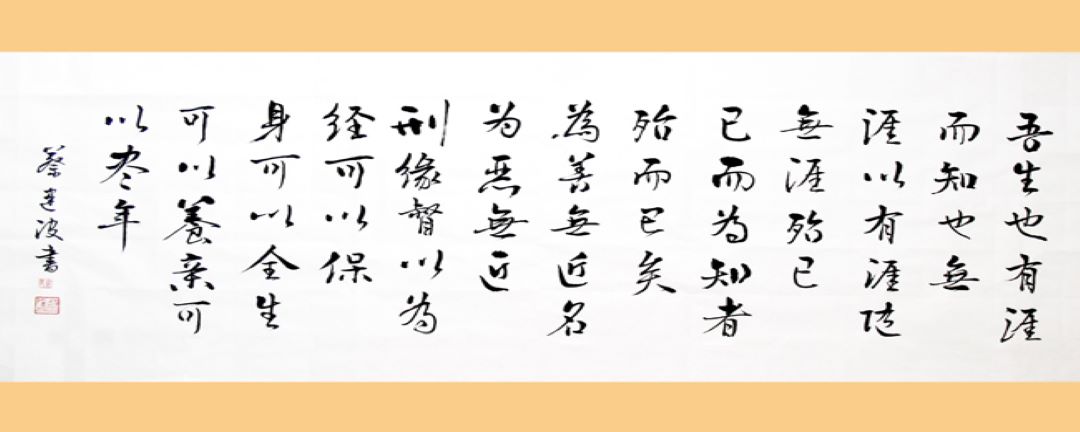 吾生也有涯
而知也無
涯以有涯随
無涯殆已
已而为知者
殆而已矣
為善無近名
为恶無近
刑缘督以为
经可以保
身可以全生
可以養亲可
以尽年
蔡建波書